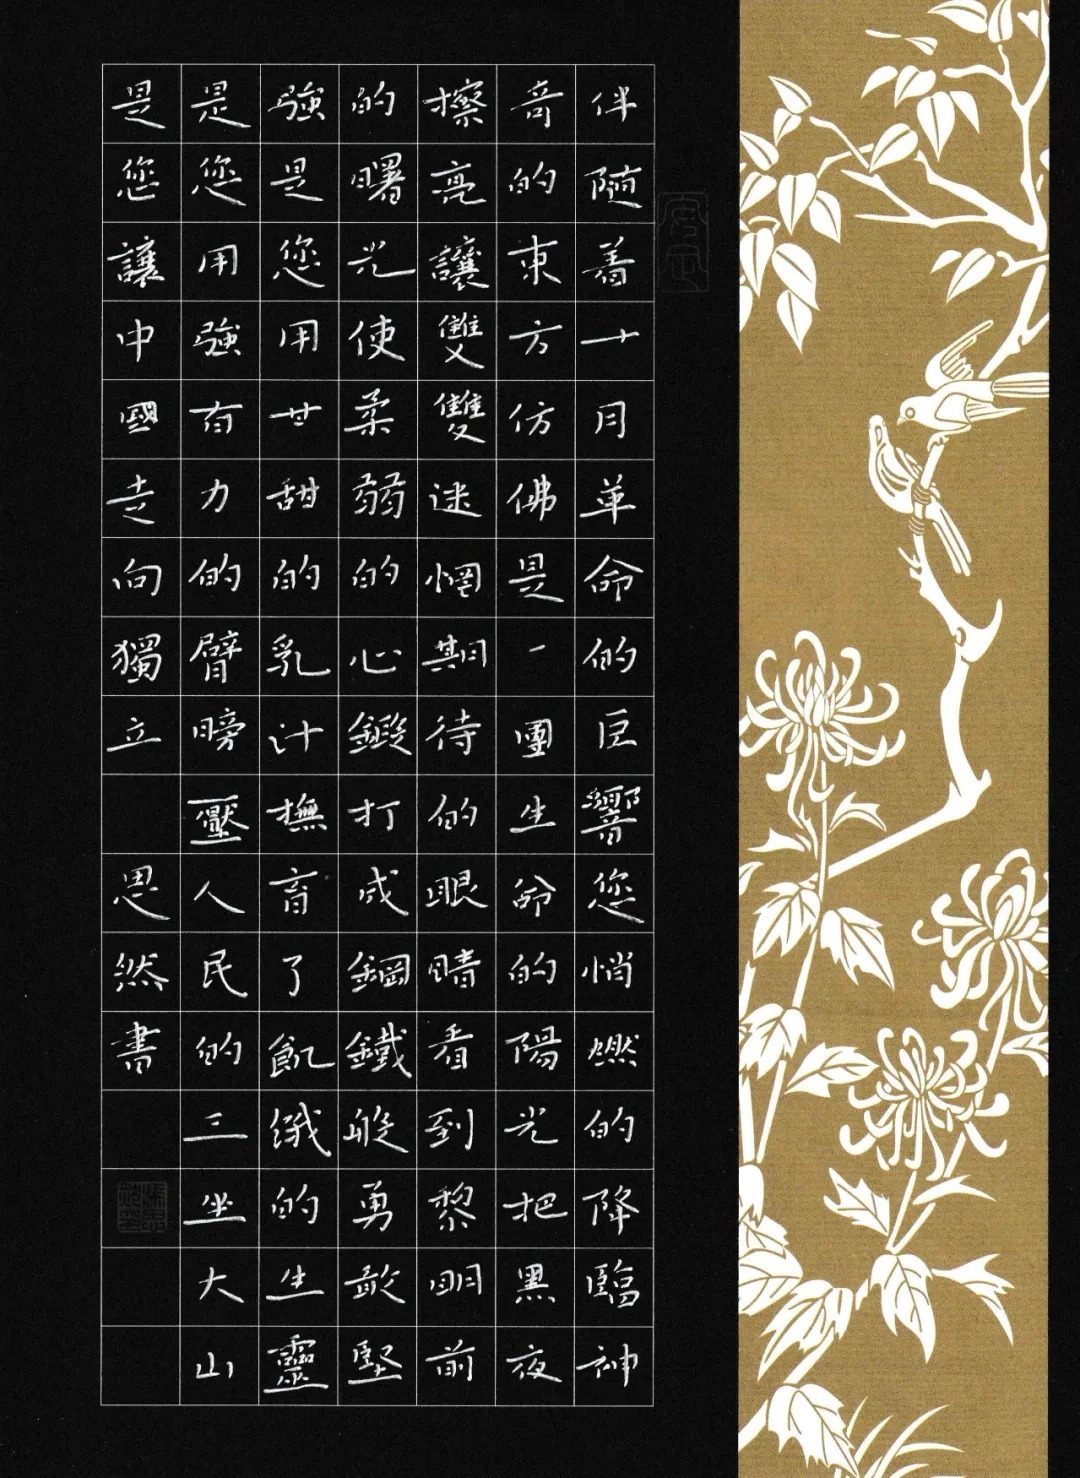 伴隨着十月革命的巨響您悄燃的降臨神
奇的東方仿佛是一團生命的陽光把黑夜
擦亮讓雙雙迷惘期待的眼睛看到黎明前
的曙光使柔弱的心鍛打成鋼鐵般勇敢堅
強是您用甘甜的乳汁撫育了飢餓的生靈
是您用強有力的臂膀壓人民的三坐大山
是您讓中國走向獨立 思然書